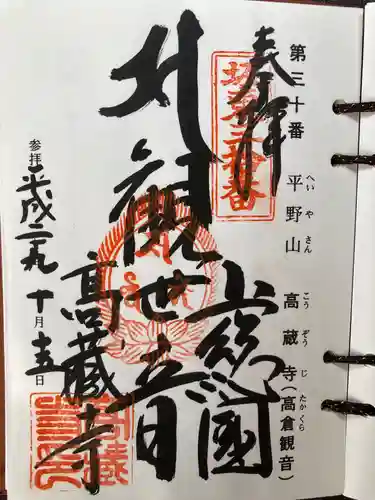 第三十番 平野山 高蔵寺(高倉観音)
へいやさん こうぞうじ たかくら
奉拝
坂東三十番
上総國
正観世音
高蔵寺
参拝 平成二九 十月十五日